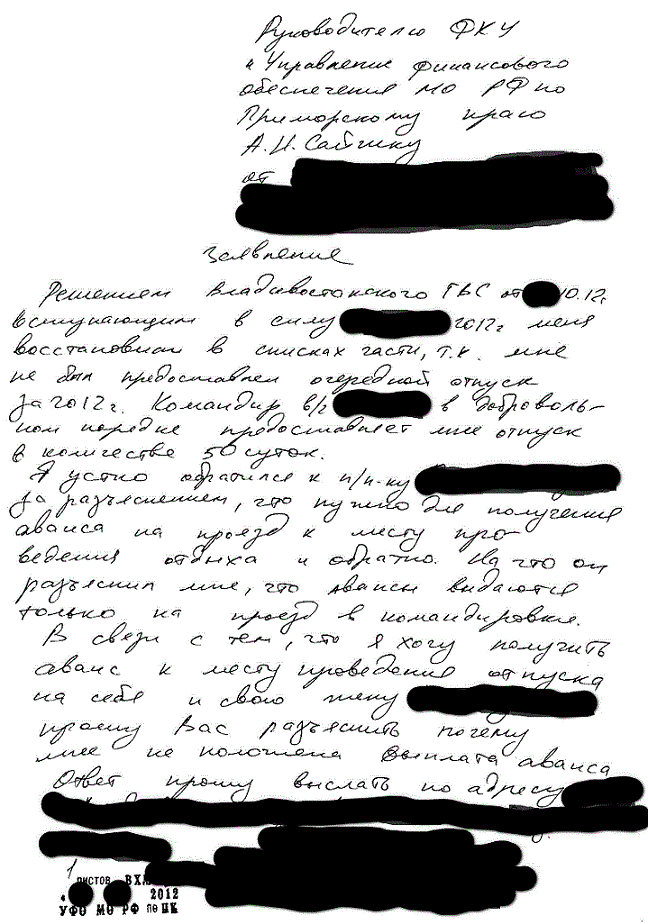 Руководителю ФКУ
"Управление финансового
обеспечения МО РФ по
Приморскому краю
от
Заявление
Решением Владивостокского ГВС от 10.12г.
вступающим в силу 2012г. меня
восстановили в списках части, т.к. мне
не был предоставлен очередной отпуск
за 2012г. Командир в/ч в доброволь-
ном порядке предоставляет мне отпуск
в количестве 50 суток.
Я устно обратился к п/п-ку
за разъяснением, что нужно для получения
аванса на проезд к месту про-
ведения отдыха и обратно. На что он
разъяснил мне, что авансы выдаются
только на проезд в командировки.
В связи с тем, что я хочу получить
аванс к месту проведения отпуска
на себя и свою жену
прошу Вас разъяснить почему
мне не положена выплата аванса
Ответ прошу выслать по адресу
1 листов ВХ
2012
УФО МО РФ по ПК